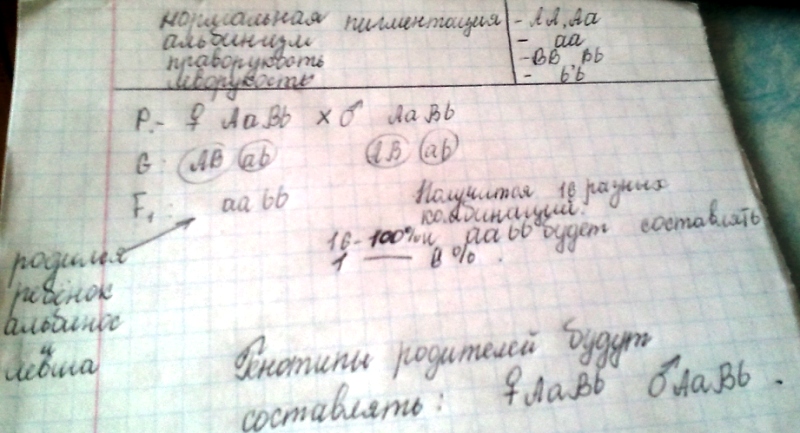 нормальная пигментация - AA, Aa
альбинизм - aa
праворукость - BB, Bb
леворукость - bb
P. - ♀ AaBb × ♂ AaBb
G: AB ab AB ab
F₁: aa bb
Получится 16 разных
комбинаций.
16 - 100% и aa bb будет составлять
1 — 6 %.
родился
ребёнок
альбинос
и
левша
Генотипы родителей будут
составлять: ♀ AaBb ♂ AaBb.